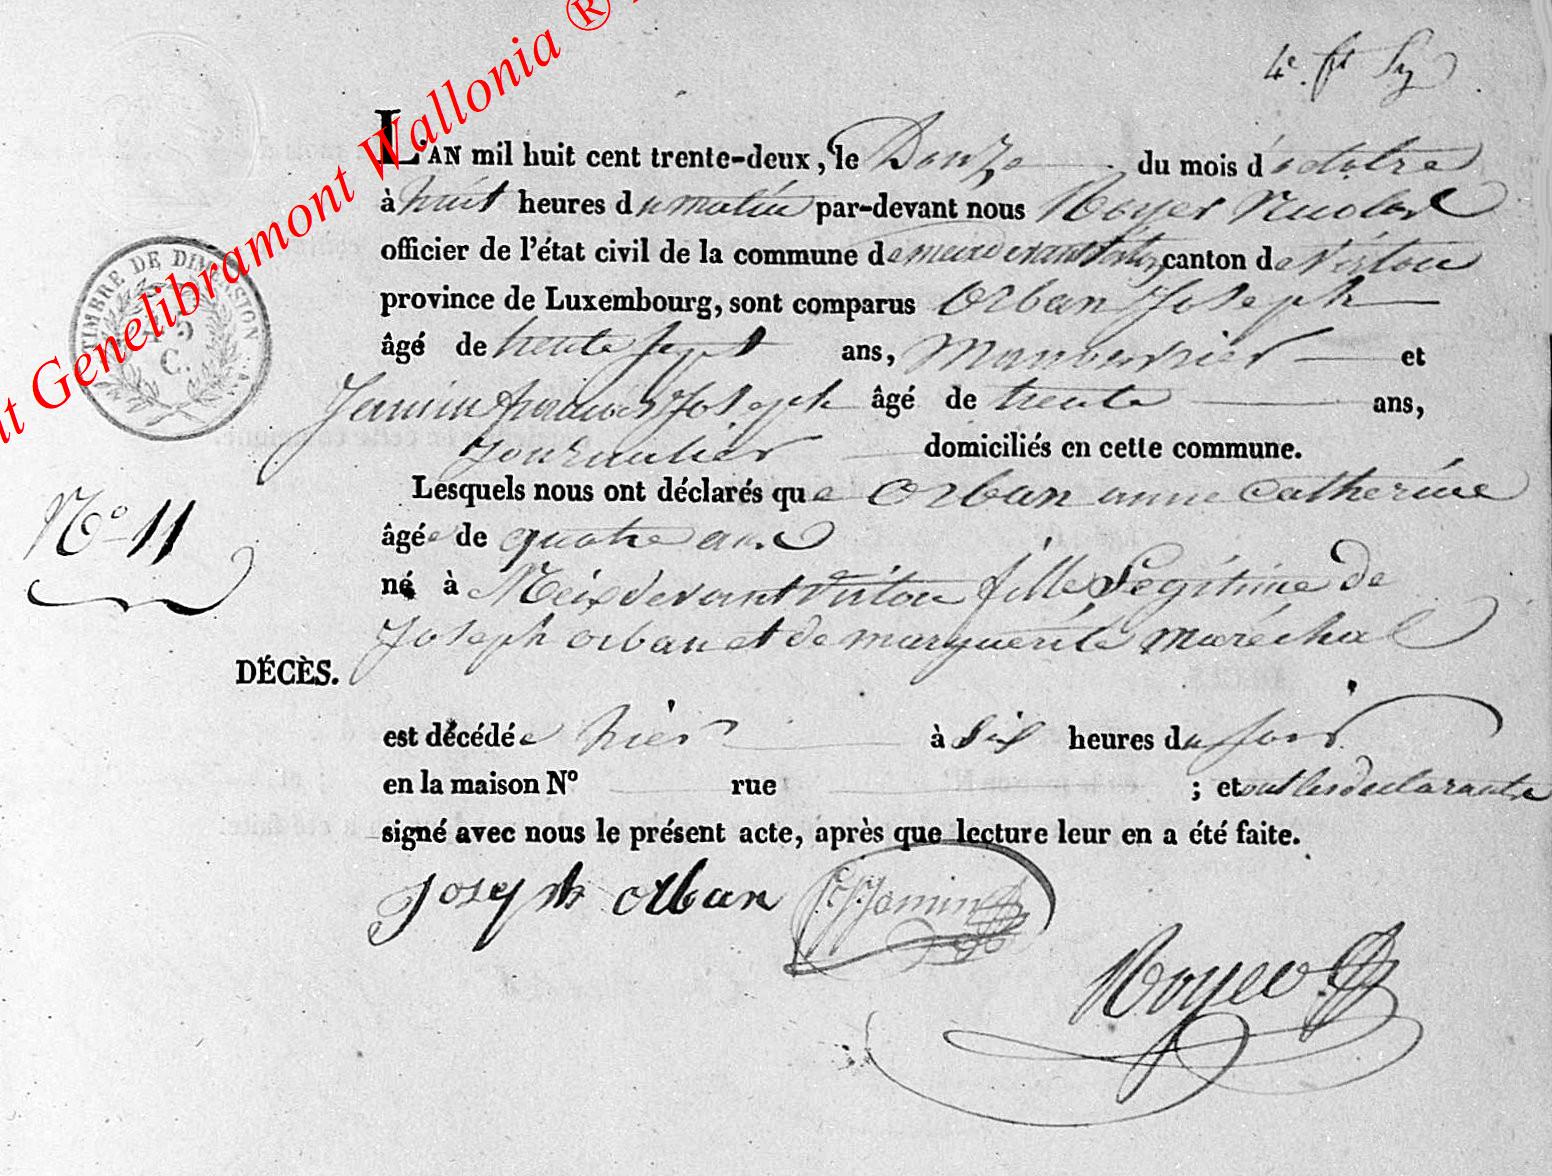 4e. ft Sy
L'AN mil huit cent trente-deux, le Douze du mois d'octobre
à huit heures du matin par-devant nous Royer Nicolas
officier de l'état civil de la commune de meix devant virton canton de virton
province de Luxembourg, sont comparus Orban Joseph
âgé de trente sept ans, Manouvrier et
Jamin francois Joseph âgé de trente ans,
Journalier domiciliés en cette commune.
Lesquels nous ont déclarés que Orban anne Catherine
âgée de quatre ans
né à Meix devant Virton fille Legitime de
Joseph orban et de marguerite maréchal
DÉCÈS.
est décédée hier à six heures du soir
en la maison No rue ; et ont les declarants
signé avec nous le présent acte, après que lecture leur en a été faite.
Joseph orban FJJamin
Royer
No 11
TIMBRE DE DIMENSION
C.
Genelibramont Wallonia ®